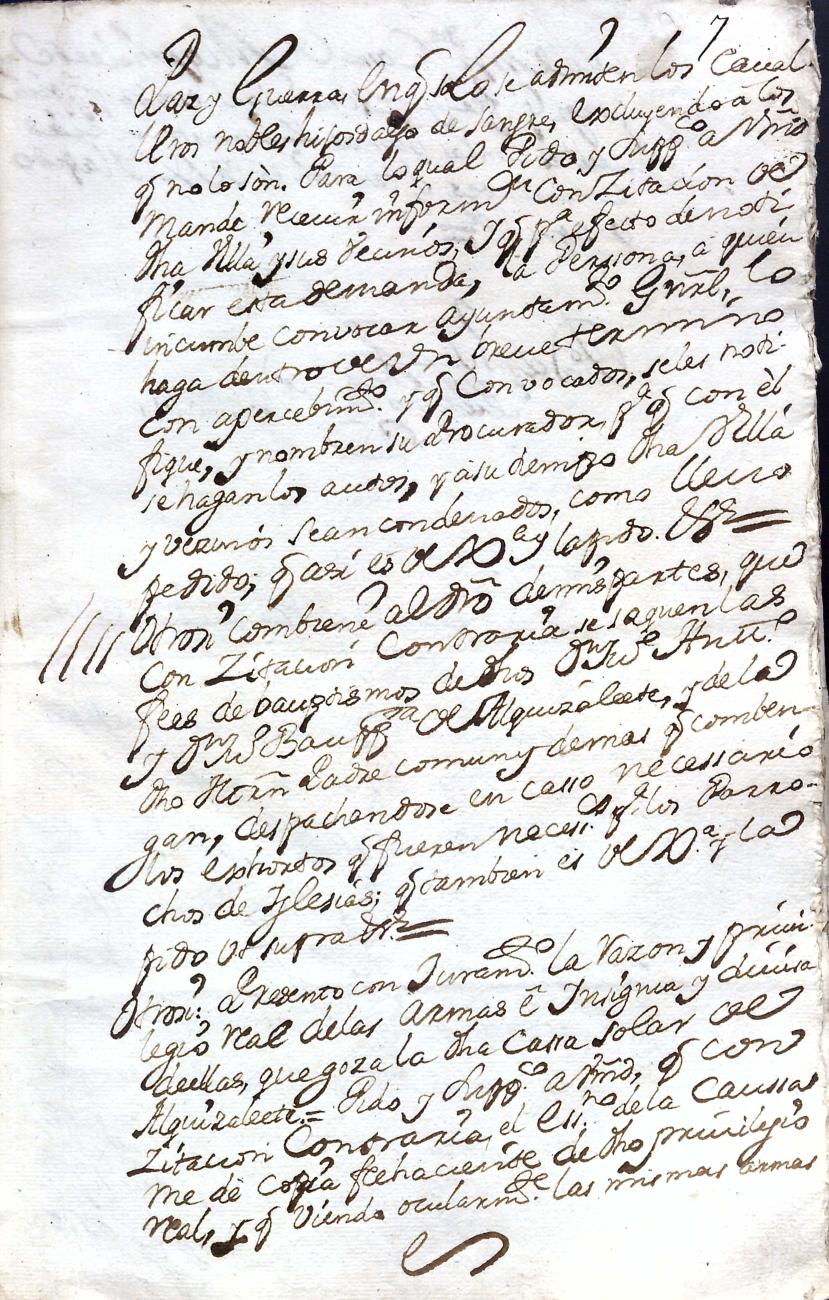 7
Paz y Guerra, en q̃ solo se admiten los Caual-
lleros nobles hijosdalgo de sangre, excluyendo a los
q̃ no lo sòn. Para lo qual Pido y Supp.co a Vm̃d
mande receuir informon Con Zitacion de
dha Villa y sus vecinos, Y q̃ pa efecto de noti-
ficar esta demanda, la Perssona, a quien
incumbe convocar ayuntamto Gñrl, lo
haga dentro de Vn breue termino
con apercebimto y q̃ Convocados, se les noti-
fique, y nombren su Procurador, pa q̃ con èl
se hagan los autos, y a su tiempo dha Villa
y vezinos sean condenados, como lleuo
pedido; q̃ asi es de Xa y la pido. &a =
Otrosi Combiene al dro de mis partes, que
con Zitacion Contraria se saquen las
fees de baptismos de dhos Dn Joseph Antto
y Dn Joseph Bauppta de Alquizalete, y de la
dho Padre comun y demas q̃ comben-
gan, despachandose en casso necessario
los exhortos q̃ fueren necess.os pa los Parro-
chos de Iglesias; q̃ tambien es de Xa y la
pido Vt supra &a =
Otrosi: Presento con Juramto la razon y priui-
legio real de las armas è Insignia y diuisa
de ellas, que goza la dha Cassa solar de
Alquizalete = Pido y Supp.co a Vm̃d, q̃ con
Zitacion Contraria, el essno de la Caussa
me de copia fechaciente de dho priuilegio
real, y q̃ Viendo ocularmte las mismas armas